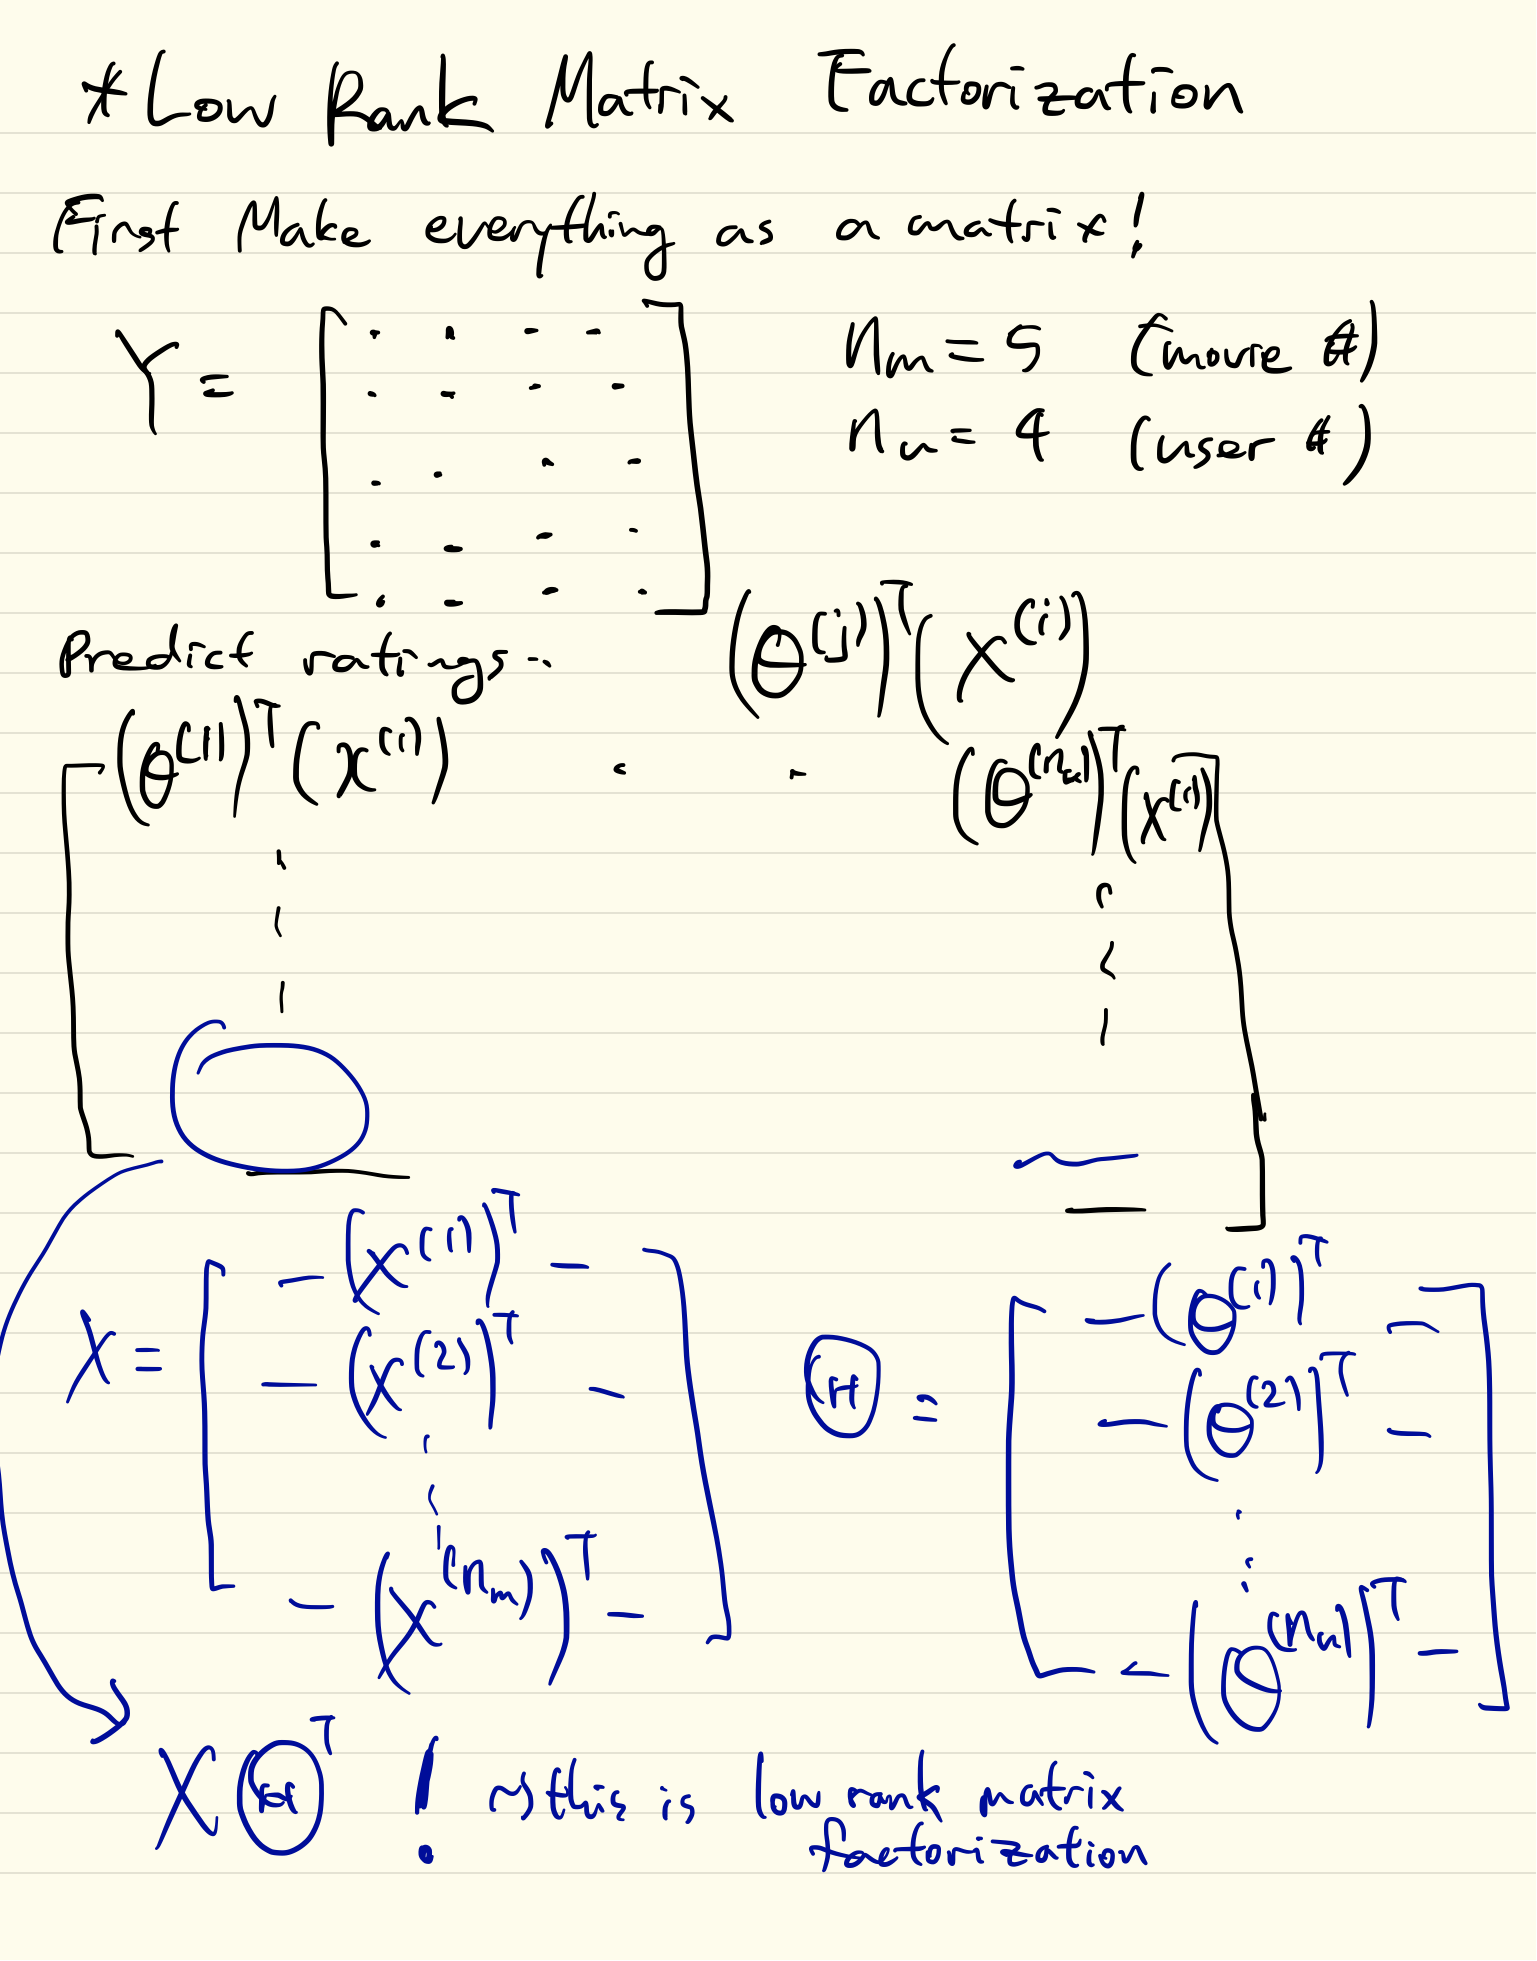 * Low Rank Matrix Factorization
First Make everything as a matrix!
Y = [ · · · · ] n_m = 5 (movie #)
n_u = 4 (user #)
Predict ratings.. (θ^(j))^T (x^(i))
[ (θ^(1))^T (x^(1)) · · (θ^(n_u))^T (x^(1)) ]
X = [ — (x^(1))^T — Θ = [ — (θ^(1))^T —
— (x^(2))^T — — (θ^(2))^T —
⋮ ⋮
— (x^(n_m))^T — ] — (θ^(n_u))^T — ]
XΘ^T ! ~> this is low rank matrix
factorization